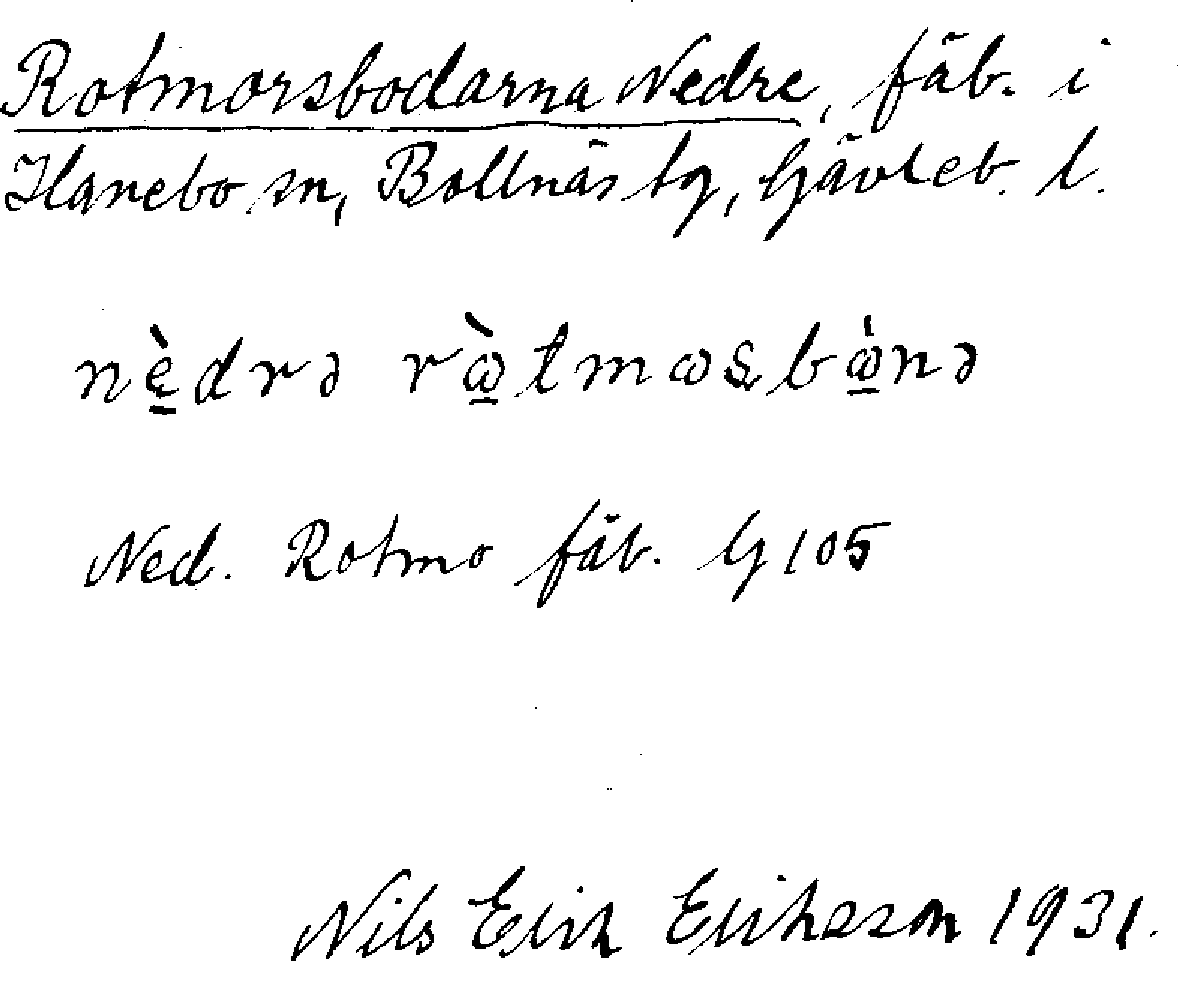 Rotmorsbodarna Nedre, fäb. i
Hanebo sn, Bollnäs tg, Gävleb. l.
nè̠drə rὼ̠tmωsbὼ̠nə
Ned. Rotmo fäb. G 105
Nils Erik Erikeson 1931.